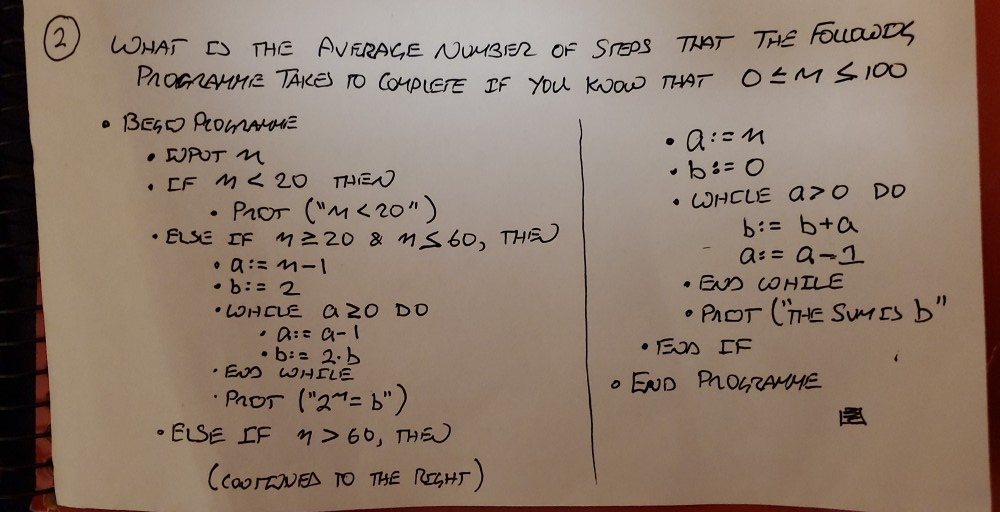 2
WHAT IS THE AVERAGE NUMBER OF STEPS THAT THE FOLLOWING
PROGRAMME TAKES TO COMPLETE IF YOU KNOW THAT 0 ≤ n ≤ 100
• BEGIN PROGRAMME
• INPUT n
• IF n < 20 THEN
• PRINT ("n < 20")
• ELSE IF n ≥ 20 & n ≤ 60, THEN
• a := n-1
• b := 2
• WHILE a ≥ 0 DO
• a := a-1
• b := 2·b
• END WHILE
• PRINT ("2ⁿ = b")
• ELSE IF n > 60, THEN
(CONTINUED TO THE RIGHT)
• a := n
• b := 0
• WHILE a > 0 DO
b := b+a
a := a-1
• END WHILE
• PRINT ("THE SUM IS b"
• END IF
• END PROGRAMME